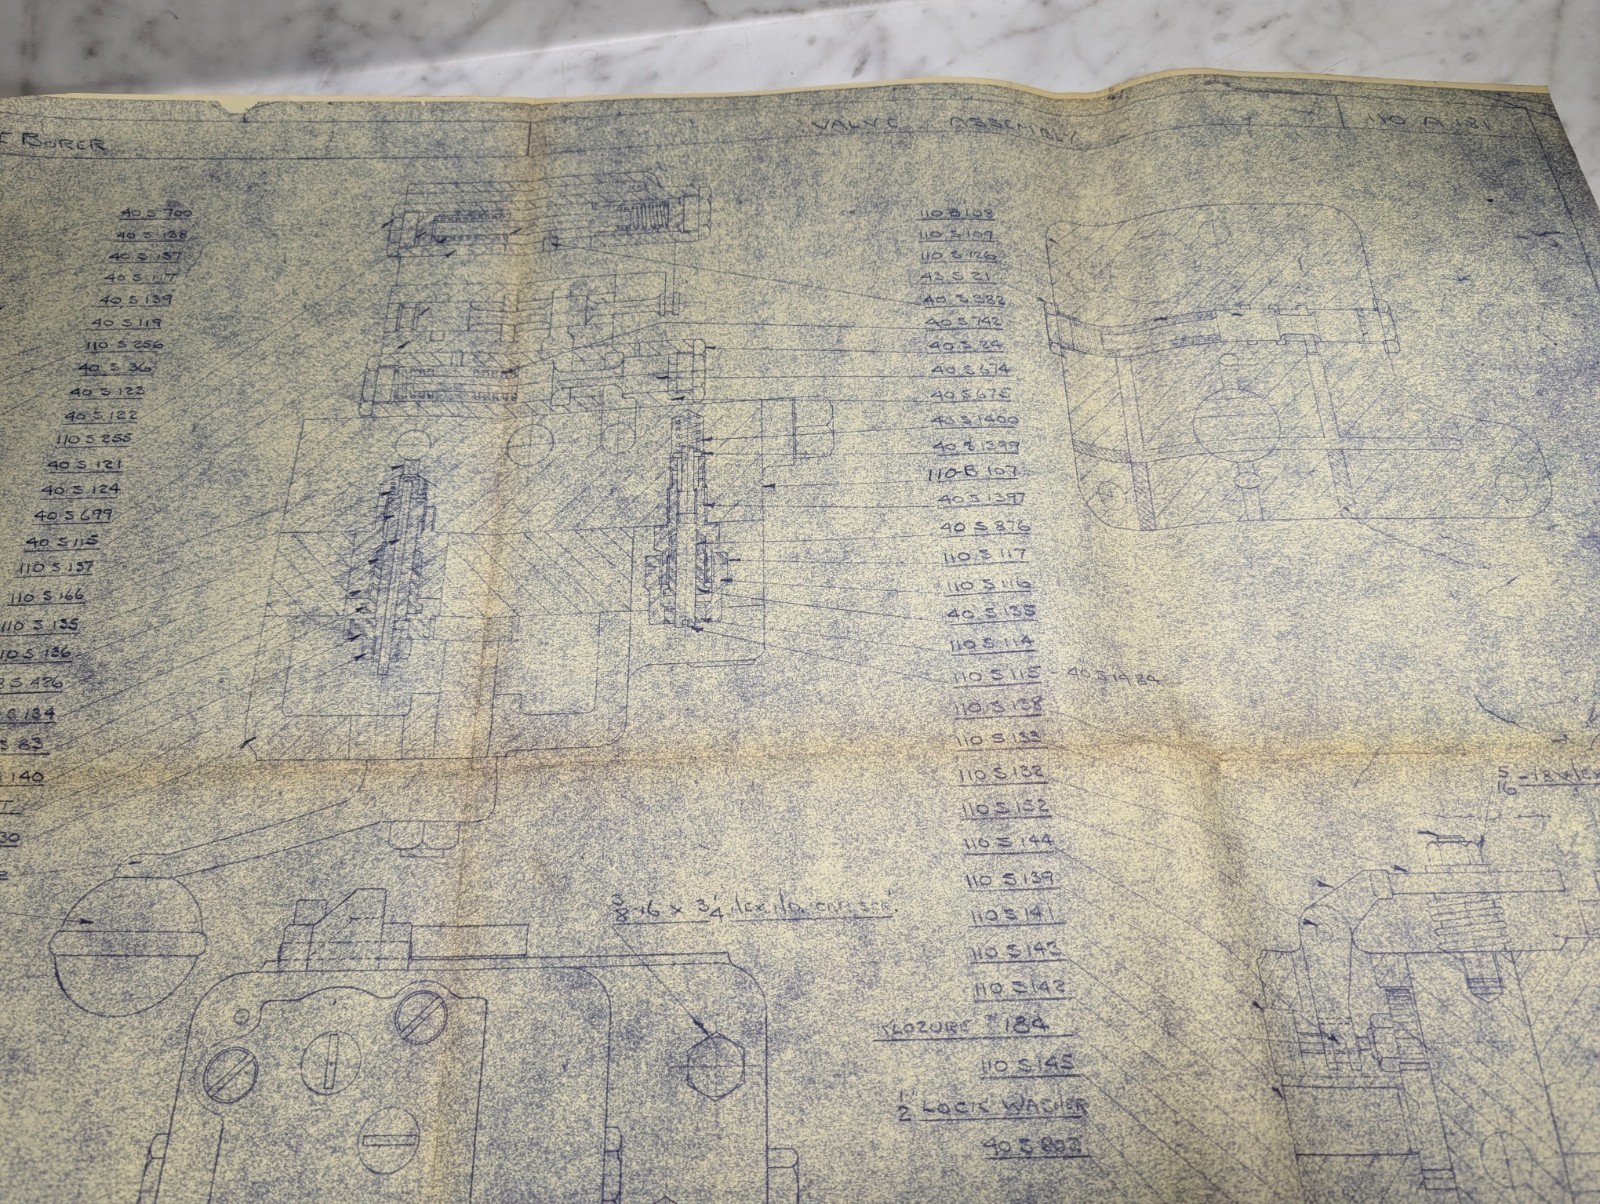 E BORER
VALVE ASSEMBLY
110 A 181
40 S 700
40 S 138
40 S 137
40 S 117
40 S 139
40 S 119
110 S 256
40 S 36
40 S 123
40 S 122
110 S 255
40 S 121
40 S 124
40 S 699
40 S 115
110 S 137
110 S 166
110 S 135
10 S 136
S 426
S 134
S 83
140
30
110 B 108
110 S 109
110 S 126
43 S 21
40 S 382
40 S 742
40 S 24
40 S 674
40 S 675
40 S 1400
40 S 1399
110-B 107
40 S 1397
40 S 876
110 S 117
110 S 116
40 S 135
110 S 114
110 S 115 - 40 S 1984
110 S 138
110 S 133
110 S 132
110 S 152
110 S 144
110 S 139
110 S 141
110 S 143
110 S 142
KLOZURE #184
110 S 145
1/2 LOCK WASHER
40 S 803
3/8-16 x 3 1/4 HEX. HD. CAP. SCR.
5/16 - 18